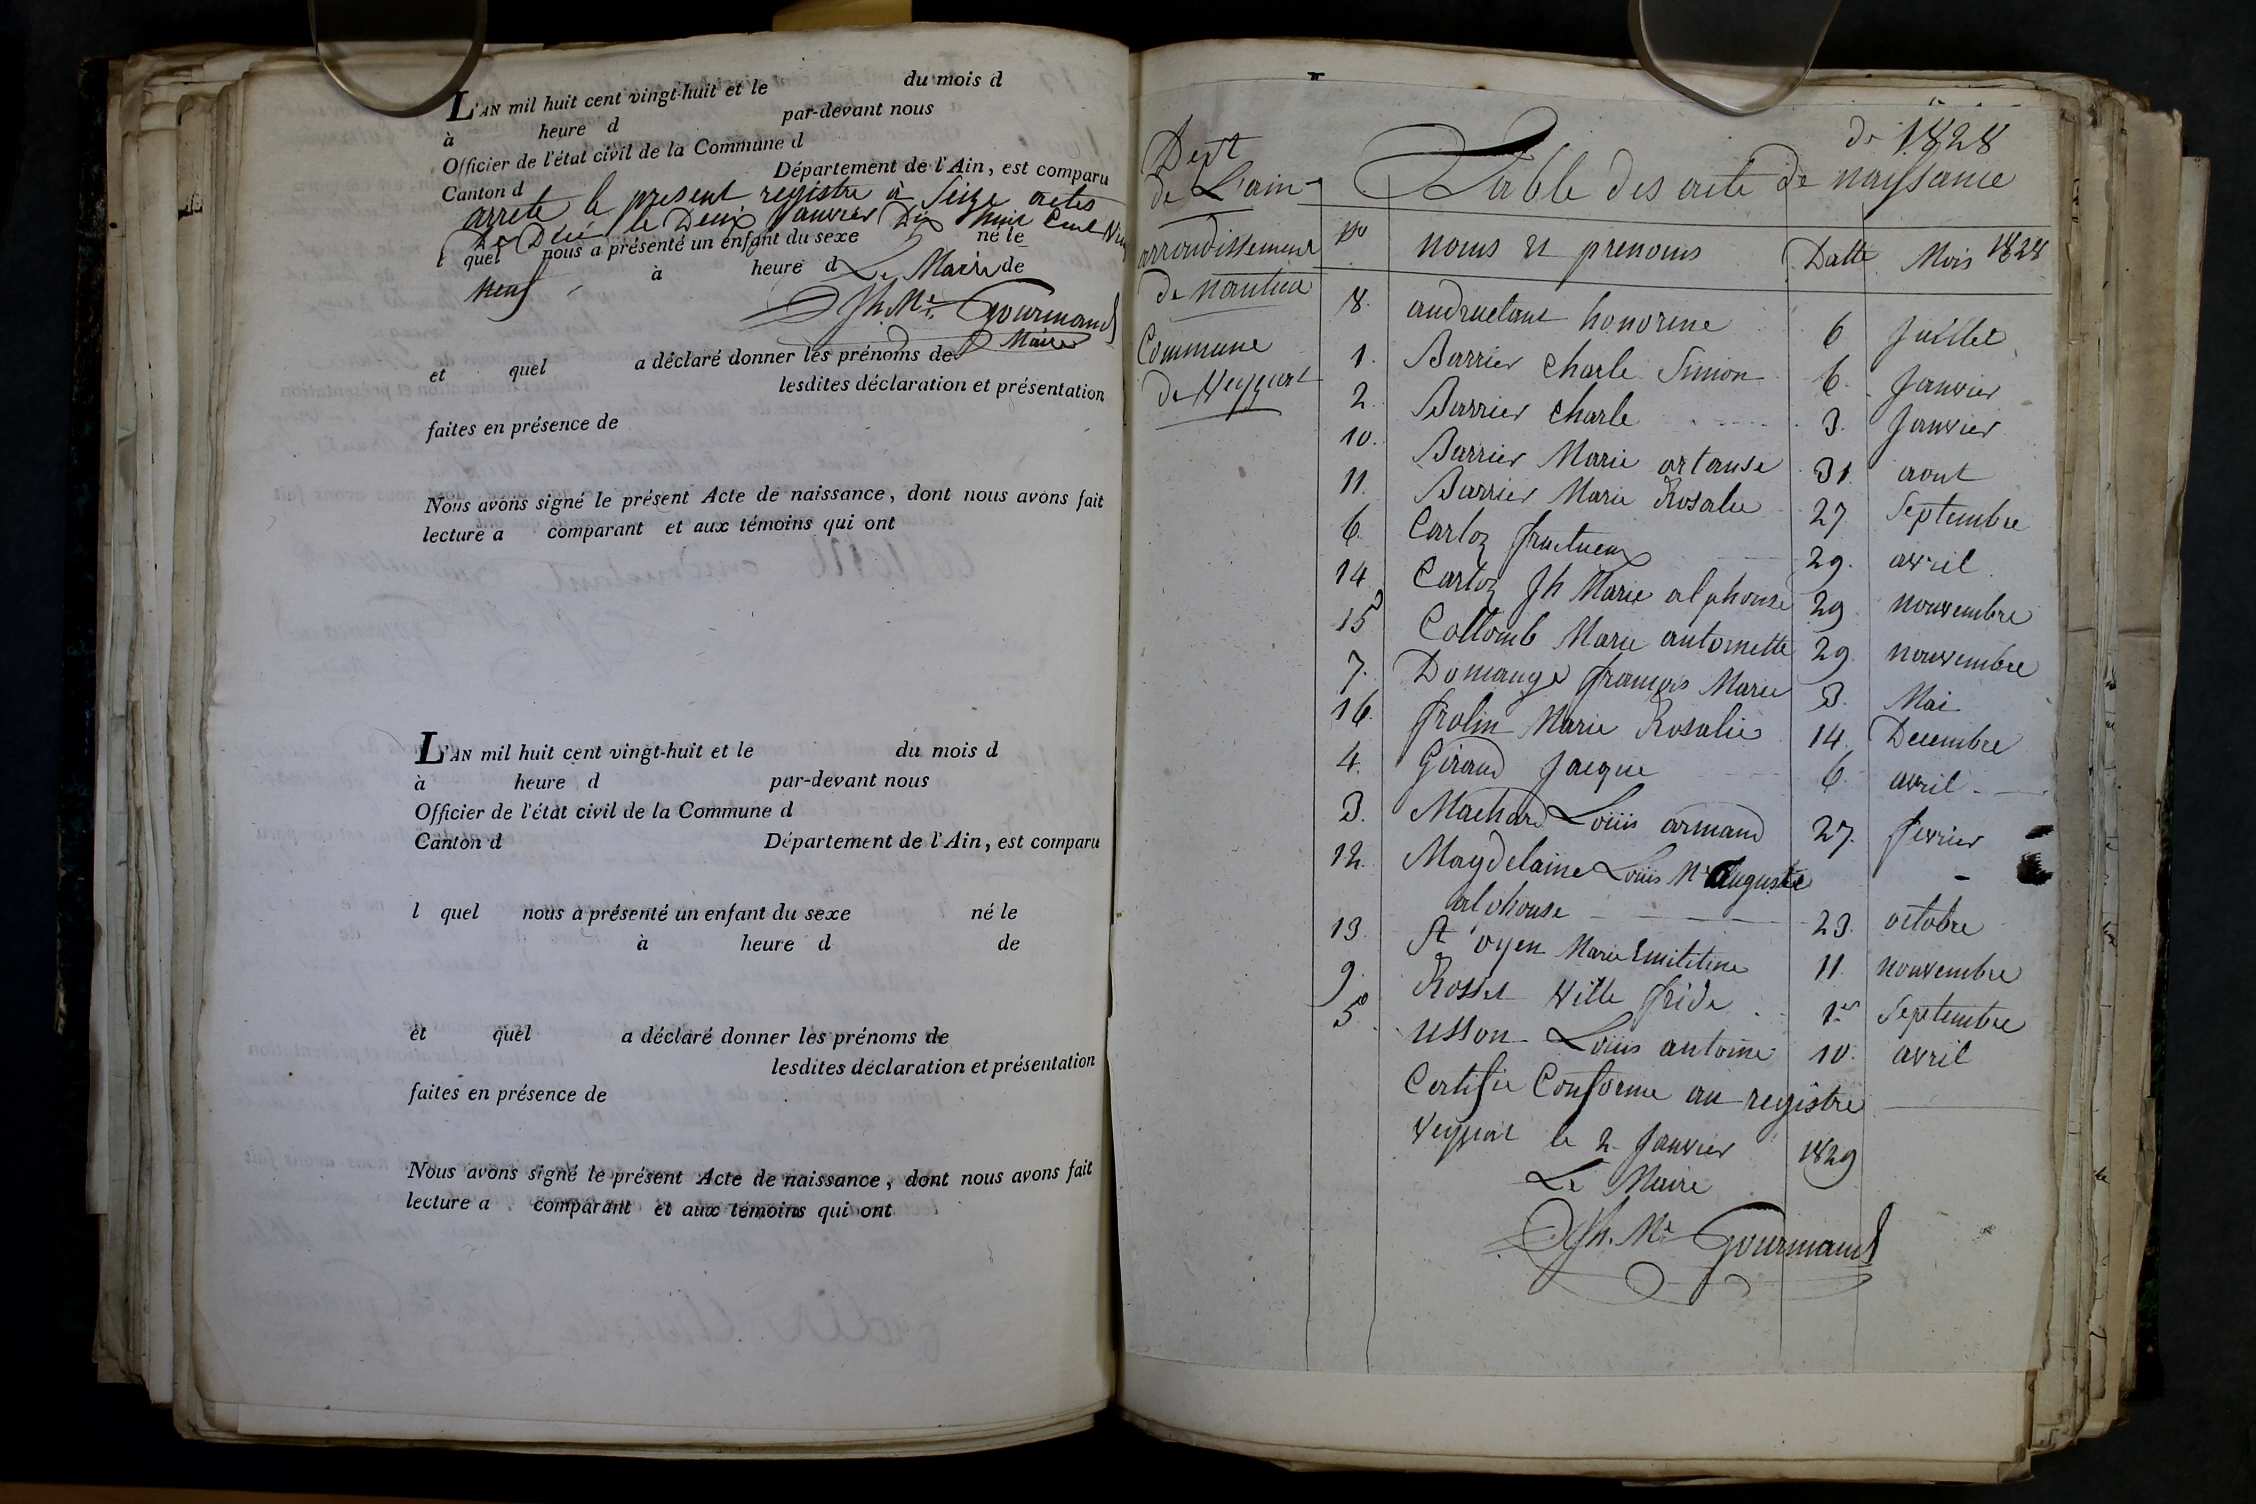 L'AN mil huit cent vingt-huit et le du mois d
à heure d par-devant nous
Officier de l'état civil de la Commune d
Canton d Département de l'Ain, est comparu
arrete le present registre à Seize actes
le Deux Janvier Dix huit Cent Vingt
l quel nous a présenté un enfant du sexe né le
neuf à heure d Le Maire de
Jh. Me. Gourmand
Maire
et quel a déclaré donner les prénoms de
lesdites déclaration et présentation
faites en présence de
Nous avons signé le présent Acte de naissance, dont nous avons fait
lecture a comparant et aux témoins qui ont
L'AN mil huit cent vingt-huit et le du mois d
à heure d par-devant nous
Officier de l'état civil de la Commune d
Canton d Département de l'Ain, est comparu
l quel nous a présenté un enfant du sexe né le
à heure d de
et quel a déclaré donner les prénoms de
lesdites déclaration et présentation
faites en présence de
Nous avons signé le présent Acte de naissance, dont nous avons fait
lecture a comparant et aux témoins qui ont
Dept
de L'ain
arrondissement
de nantua
Commune
de Veyziat
de 1828
Table des acte de naissance
No noms et prenoms Datte Mois 1828
8. andruetant honorine 6 Juillet
1. Barrier Charle Simon 6. Janvier
2. Barrier Charle 3. Janvier
10. Barrier Marie ortanse 31. aout
11. Barrier Marie Rosalie 27 Septembre
6. Carloz fructueux 29. avril
14. Carloz Jh Marie alphonse 29 nouvembre
15 Collomb Marie antoinette 29 nouvembre
7. Domange françois Marie 3. Mai
16. frolin Marie Rosalie 14. Decembre
4. Giraud Jacque 6 avril
3. Machard Louis armand 27. fevrier
12. Maydelaine Louis Me auguste
alphonse 23. octobre
13. St oyen Marie Emilitine 11. nouvembre
9. Rosset Wille fride 1er Septembre
5. usson Louis antoine 10. avril
Certifie Conforme au registre
Veyziat le 2 Janvier 1829
Le Maire
Jh. Me Gourmand